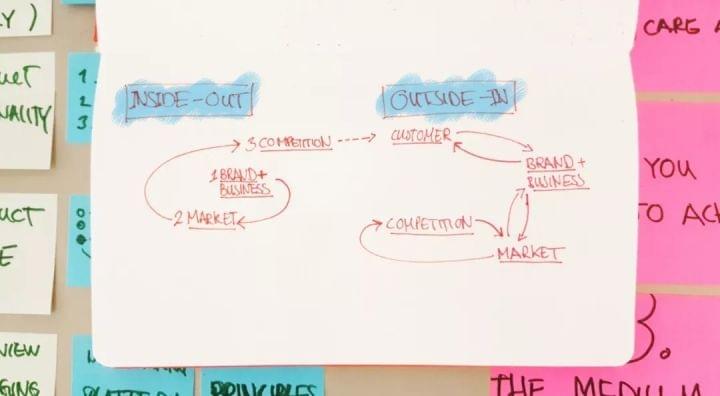 Y)
UCT
NALITY
1.
2
3
UCT
E
VIEW
GING
PRINCIPLES
INSIDE-OUT
3 COMPETITION
1 BRAND+
BUSINESS
2 MARKET
OUTSIDE-IN
CUSTOMER
BRAND +
BUSINESS
COMPETITION
MARKET
CARE
YOU
TO
3.
THE MEDIUM